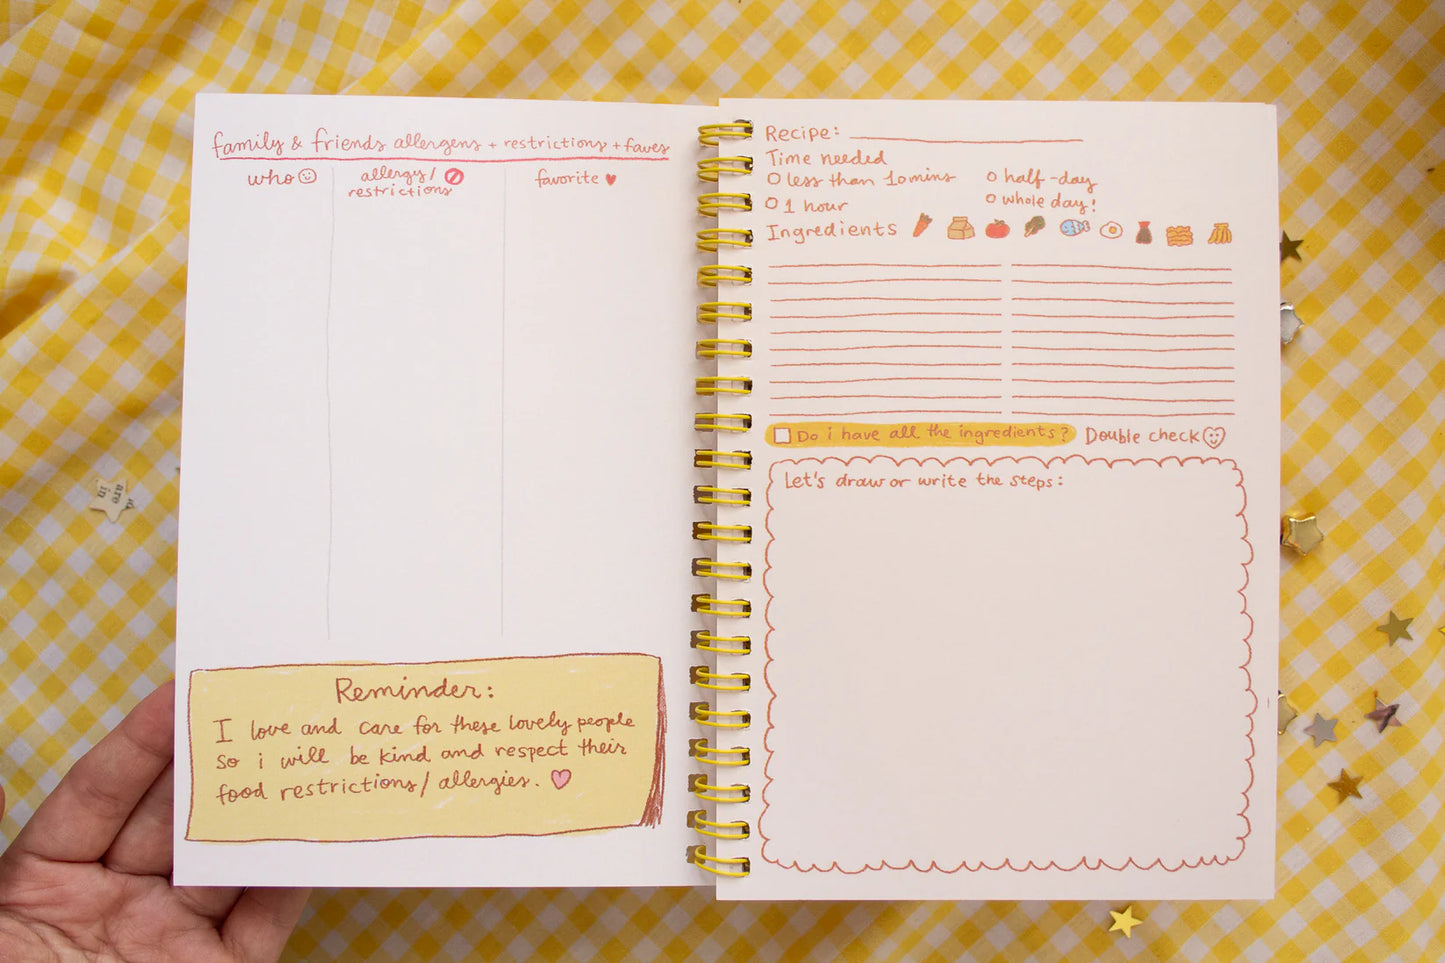 family & friends allergens + restrictions + faves
who
allergy/
restrictions
favorite
Reminder:
I love and care for these lovely people
so i will be kind and respect their
food restrictions/ allergies.
Recipe:
Time needed
less than 10mins
half-day
1 hour
whole day!
Ingredients
Do i have all the ingredients? Double check
Let's draw or write the steps:
are
in